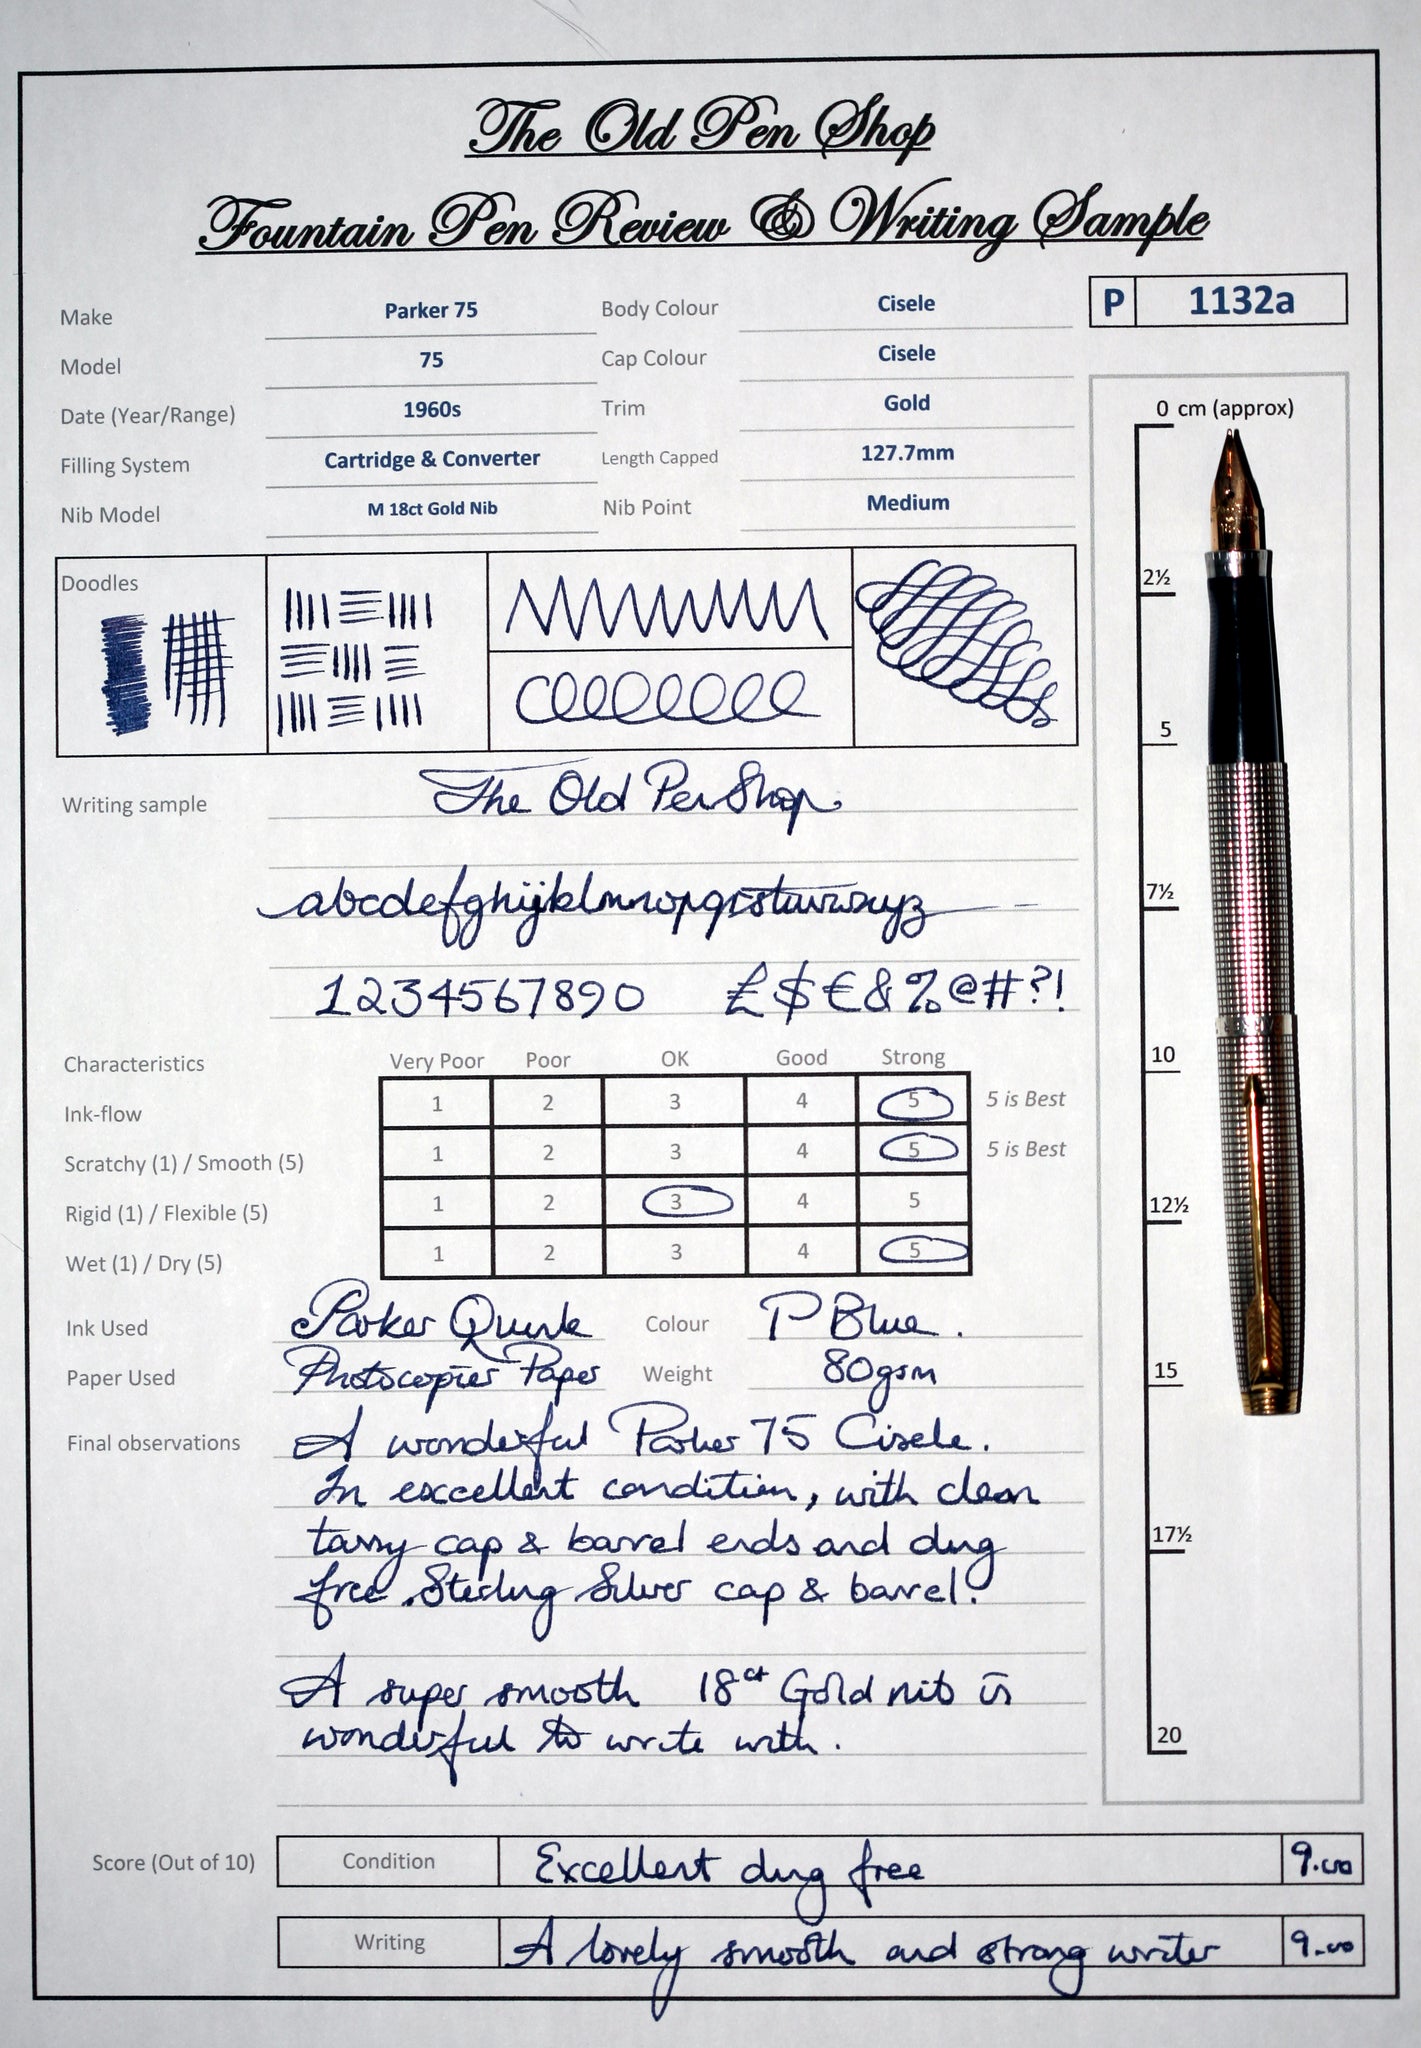 The Old Pen Shop
Fountain Pen Review & Writing Sample
P 1132a
Make Parker 75 Body Colour Cisele
Model 75 Cap Colour Cisele
Date (Year/Range) 1960s Trim Gold
Filling System Cartridge & Converter Length Capped 127.7mm
Nib Model M 18ct Gold Nib Nib Point Medium
0 cm (approx)
2½
5
7½
10
12½
15
17½
20
Doodles
Writing sample The Old Pen Shop
abcdefghijklmnopqrstuvwxyz
1234567890 £$€&%@#?!
Characteristics Very Poor Poor OK Good Strong
Ink-flow 1 2 3 4 5 5 is Best
Scratchy (1) / Smooth (5) 1 2 3 4 5 5 is Best
Rigid (1) / Flexible (5) 1 2 3 4 5
Wet (1) / Dry (5) 1 2 3 4 5
Ink Used Parker Quink Colour P Blue.
Paper Used Photocopier Paper Weight 80gsm
Final observations A wonderful Parker 75 Cisele.
In excellent condition, with clean
tassy cap & barrel ends and ding
free Sterling Silver cap & barrel.
A super smooth 18ct Gold nib is
wonderful to write with.
Score (Out of 10) Condition Excellent ding free 9.00
Writing A lovely smooth and strong writer 9.00